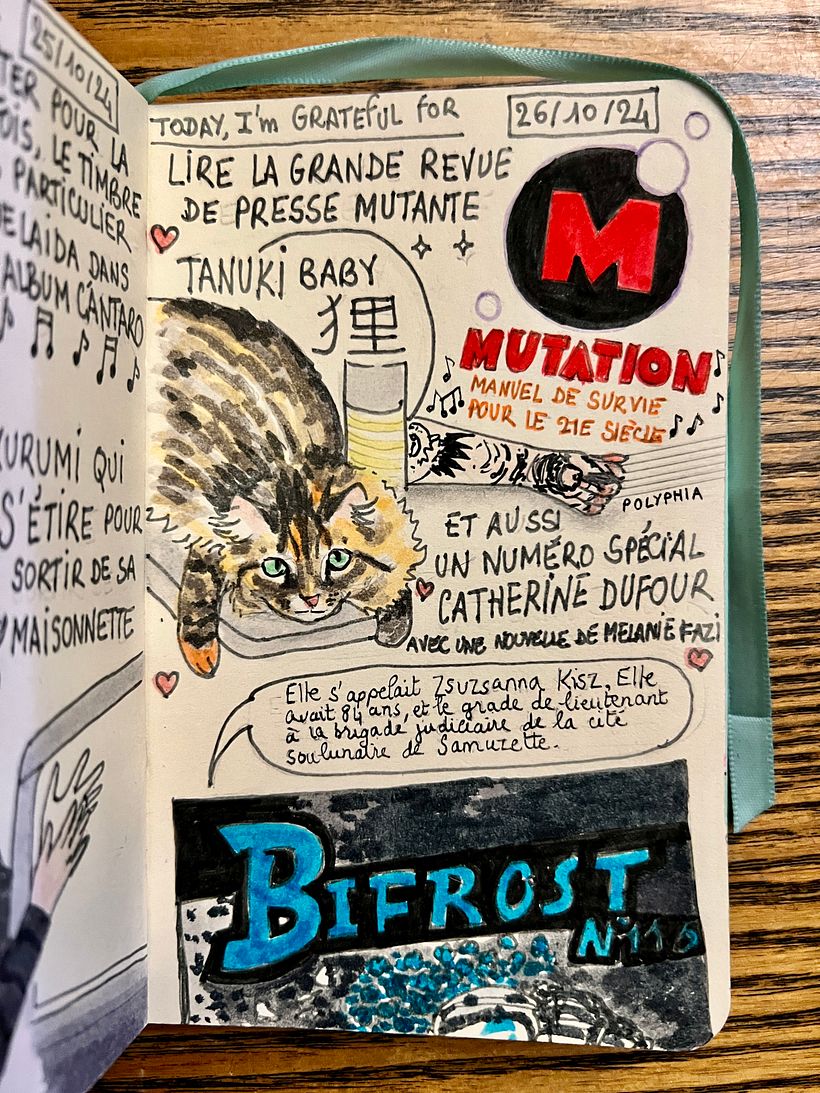 25/10/24
POUR LA
FOIS, LE TIMBRE
PARTICULIER
DANS
ALBUM CÁNTARO
KURUMI QUI
S'ÉTIRE POUR
SORTIR DE SA
MAISONNETTE
TODAY, I'm GRATEFUL FOR
26/10/24
LIRE LA GRANDE REVUE
DE PRESSE MUTANTE
TANUKI BABY
狸
M
MUTATION
MANUEL DE SURVIE
POUR LE 21E SIÈCLE
POLYPHIA
ET AUSSI
UN NUMÉRO SPÉCIAL
CATHERINE DUFOUR
AVEC UNE NOUVELLE DE MELANIE FAZI
Elle s'appelait Zsuzsanna Kisz. Elle
avait 84 ans, et le grade de lieutenant
à la brigade judiciaire de la cité
soulunaire de Samuzette.
BIFROST
N°116